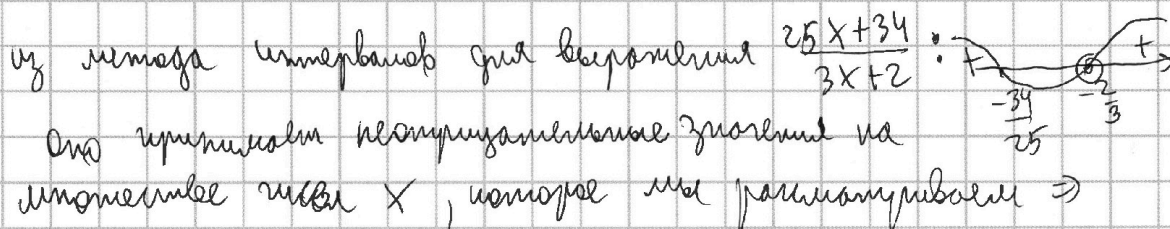 из метода интервалов для выражения (25x+34)/(3x+2) : + -34/25 -2/3 +
оно принимает неотрицательные значения на
множестве чисел x, которое мы рассматриваем ⇒